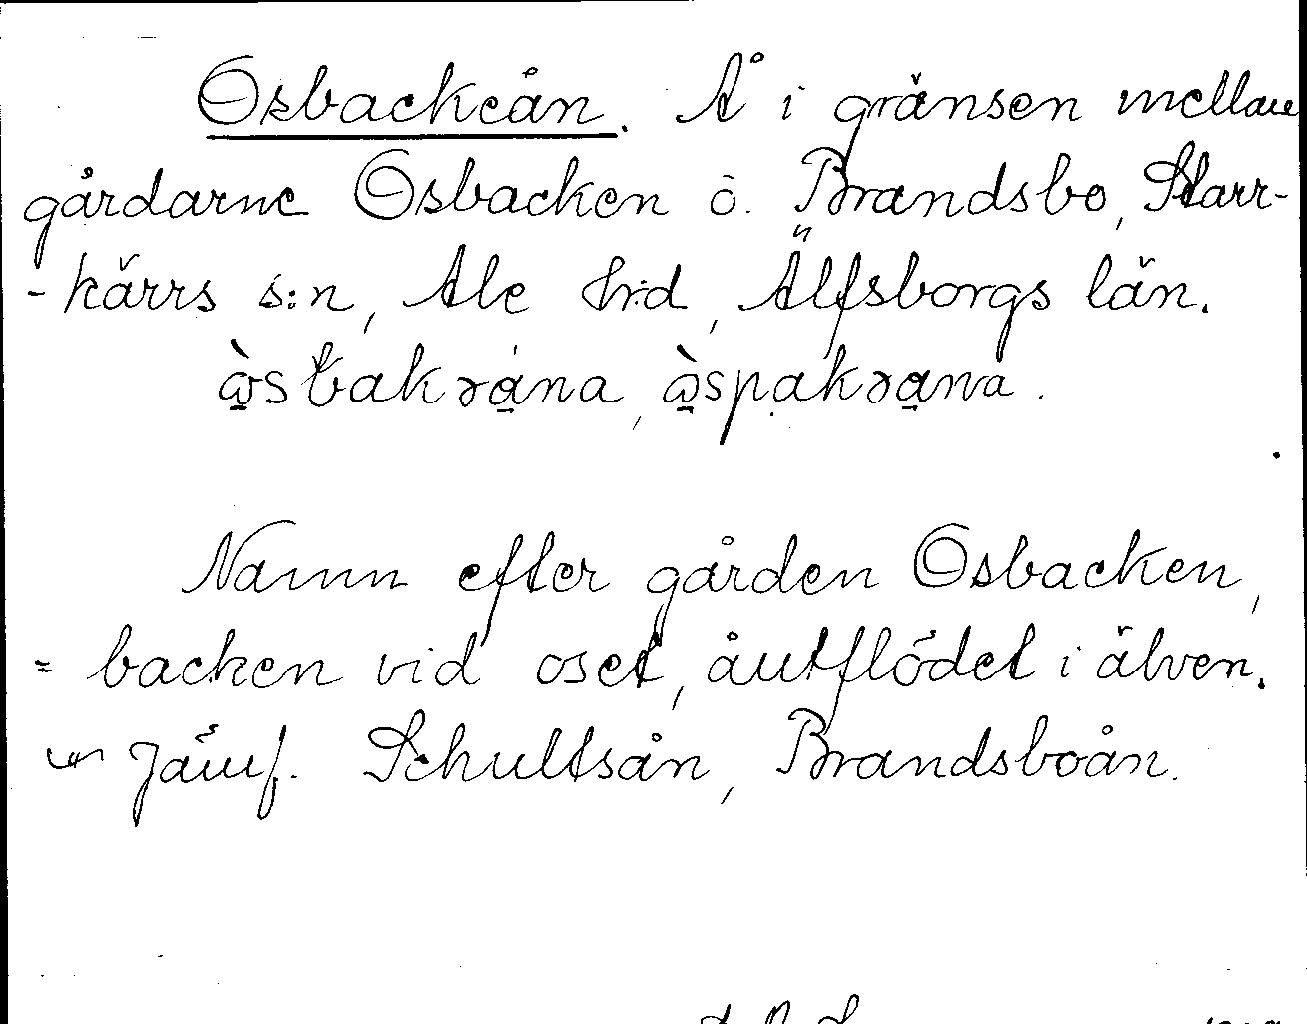 Osbackeån. Å i gränsen mellan
gårdarne Osbacken o. Brandsbo, Starr-
-kärrs s:n, Ale hrd, Älfsborgs län.
Namn efter gården Osbacken,
= backen vid oset, åutflödet i älven.
Jämf. Schultsån, Brandsboån.